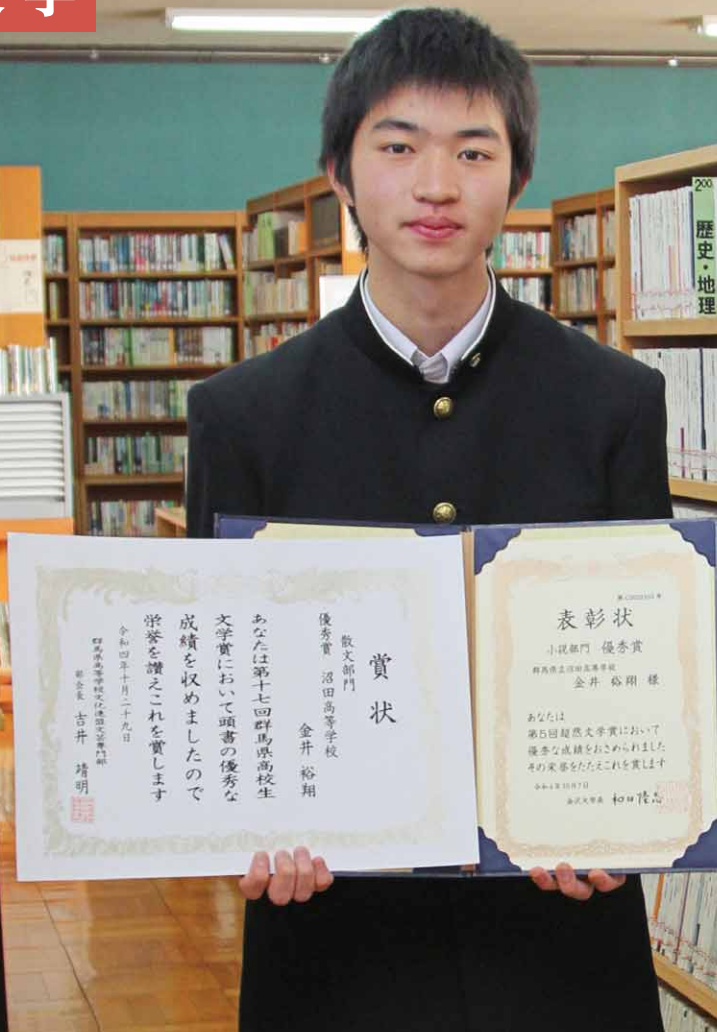 学
200
歴史・地理
賞状
散文部門
優秀賞 沼田高等学校
金井 裕翔
あなたは第十七回群馬県高校生
文学賞において頭書の優秀な
成績を収めましたので
栄誉を讃えこれを賞します
令和四年十月二十九日
群馬県高等学校文化連盟文芸専門部
部会長 吉井 靖明
表彰状
小説部門 優秀賞
群馬県立沼田高等学校
金井 裕翔 様
あなたは
第5回超然文学賞において
優秀な成績をおさめられました
その栄誉をたたえこれを賞します
令和4年10月7日
金沢大学長 和田隆志